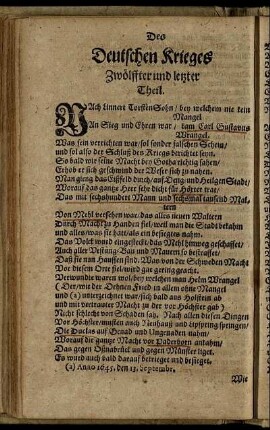 Des
Deutschen Krieges
Zwölffter und letzter
Theil.
NAch Linnert TorstenSohn / bey welchem nie kein
Mangel
An Sieg und Ehren war / kam Carl Gustavus
Wrangel.
Was sein verrichten war / sol sonder falschen Schein /
und sol also der Schluß des Kriegs berichtet seyn.
So bald wie seine Macht bey Gotha richtig sahen /
Erhob er sich geschwind der Weser sich zu nahen.
Man gieng das Eißfeld durch / auf Ding- und Heilgen Stadt /
Worauf das gantze Heer sehr dicht für Höxter trat /
Das mit sechshundert Mann und sechsmal tausend Mal-
tern
Von Mehl versehen war / das alles neuen Waltern
Durch Macht zu Handen fiel / weil man die Stadt bekahm
und alles / was sie hatt / als ein besiegten nahm.
Das Volck ward eingesteckt / das Mehl hinweg geschaffet /
Auch aller Vestung-Bau und Mauren so bestraffet /
Daß sie nun Hauffen ist. Was von der Schweden Macht
Vor diesem Orte fiel / wird gar gering geacht.
Verwundte waren wolbey / welchen man Helm Wrangel
(Der / wie der Dehnen Freind in allem ohne Mangel
und (a) unterzeichnet war / sich bald aus Holstein ab
und mit vertrauter Macht zu der vor Höchster gab)
Nicht schlecht von Schaden sah. Nach allen diesen Dingen
Vor Höchster / musten auch Neuhauß und Lipspring springen /
Die Duclas auf Genad und Ungenaden nahm /
Worauf die gantze Macht vor Paderborn ankahm /
Das gegen Oßnabrück und gegen Münster liget.
Es ward auch bald darauf betrieget und besieget.
(a) Anno 1645. den 13. Septembr.
Wie